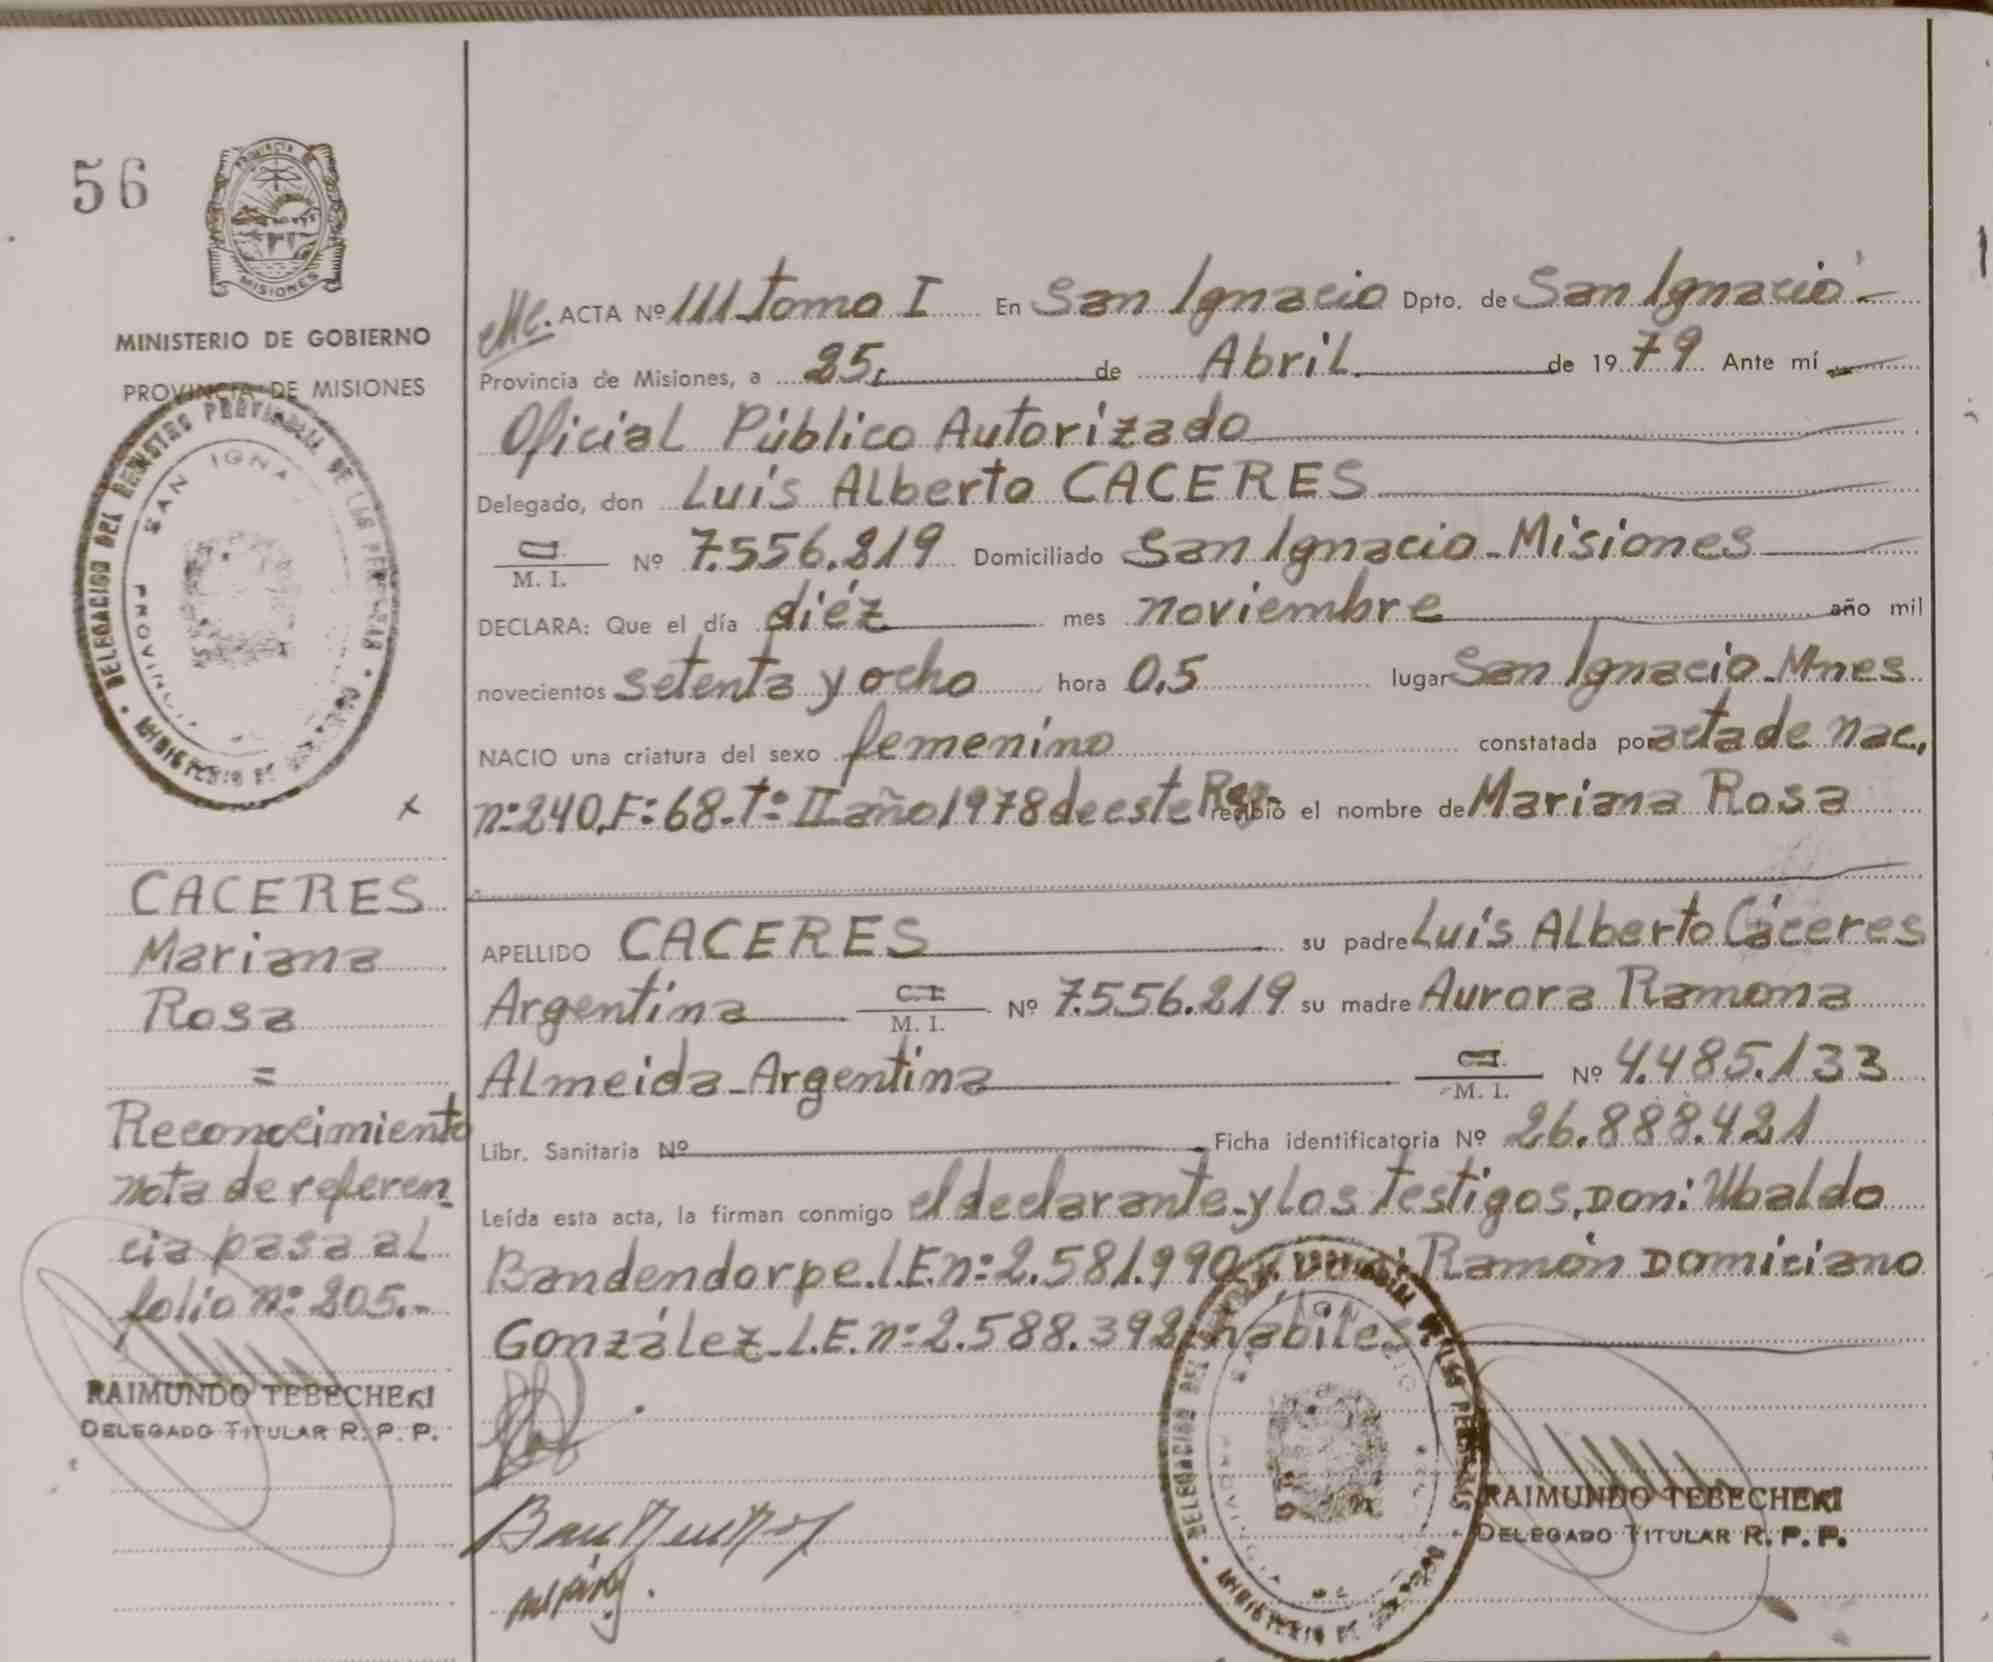 56
PROVINCIA DE
MISIONES
MINISTERIO DE GOBIERNO
PROVINCIA DE MISIONES
DELEGACION DEL REGISTRO PROVINCIAL DE LAS PERSONAS
SAN IGNA
PROVINCIA
MINISTERIO DE GOBIERNO
CACERES
Mariana
Rosa
=
Reconocimiento
nota de referen
cia pasa al
folio nº 205.-
RAIMUNDO TEBECHERI
DELEGADO TITULAR R. P. P.
ACTA Nº 111 tomo I En San Ignacio Dpto. de San Ignacio
Provincia de Misiones, a 25 de Abril de 1979 Ante mí
Oficial Público Autorizado
Delegado, don Luis Alberto CACERES
M. I. Nº 7.556.219 Domiciliado San Ignacio-Misiones
DECLARA: Que el día diéz mes noviembre año mil
novecientos setenta y ocho hora 0,5 lugar San Ignacio-Mnes
NACIO una criatura del sexo femenino constatada por acta de nac.
nº 240. Fº 68-Tº II año 1978 de este Reg. recibió el nombre de Mariana Rosa
APELLIDO CACERES su padre Luis Alberto Cáceres
Argentina C.I. M. I. Nº 7.556.219 su madre Aurora Ramona
Almeida-Argentina C.I. M. I. Nº 4.485.133
Libr. Sanitaria Nº Ficha identificatoria Nº 26.888.421
Leída esta acta, la firman conmigo el declarante y los testigos, Don: Ubaldo
Bandendorpe.L.E.nº 2.581.990 y Don: Ramón Domiciano
González-L.E.nº 2.588.392 habiles.
DELEGACION DEL REGISTRO PROVINCIAL DE LAS PERSONAS
SAN IGNACIO
PROVINCIA
MINISTERIO DE GOBIERNO
RAIMUNDO TEBECHERI
DELEGADO TITULAR R. P. P.